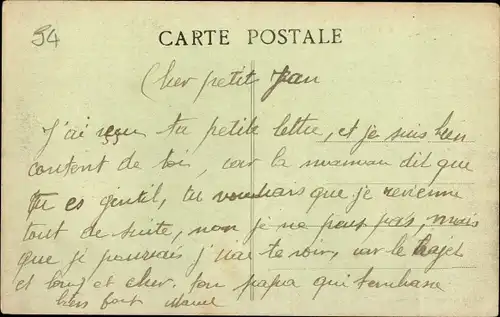 54
CARTE POSTALE
Cher petit Jean
J'ai reçu ta petite lettre, et je suis bien
content de toi, car la maman dit que
tu es gentil, tu voudrais que je revienne
tout de suite, non je ne peux pas, mais
que je pourrais j'irai te voir, car le trajet
et long et cher. ton papa qui t'embrasse
bien fort